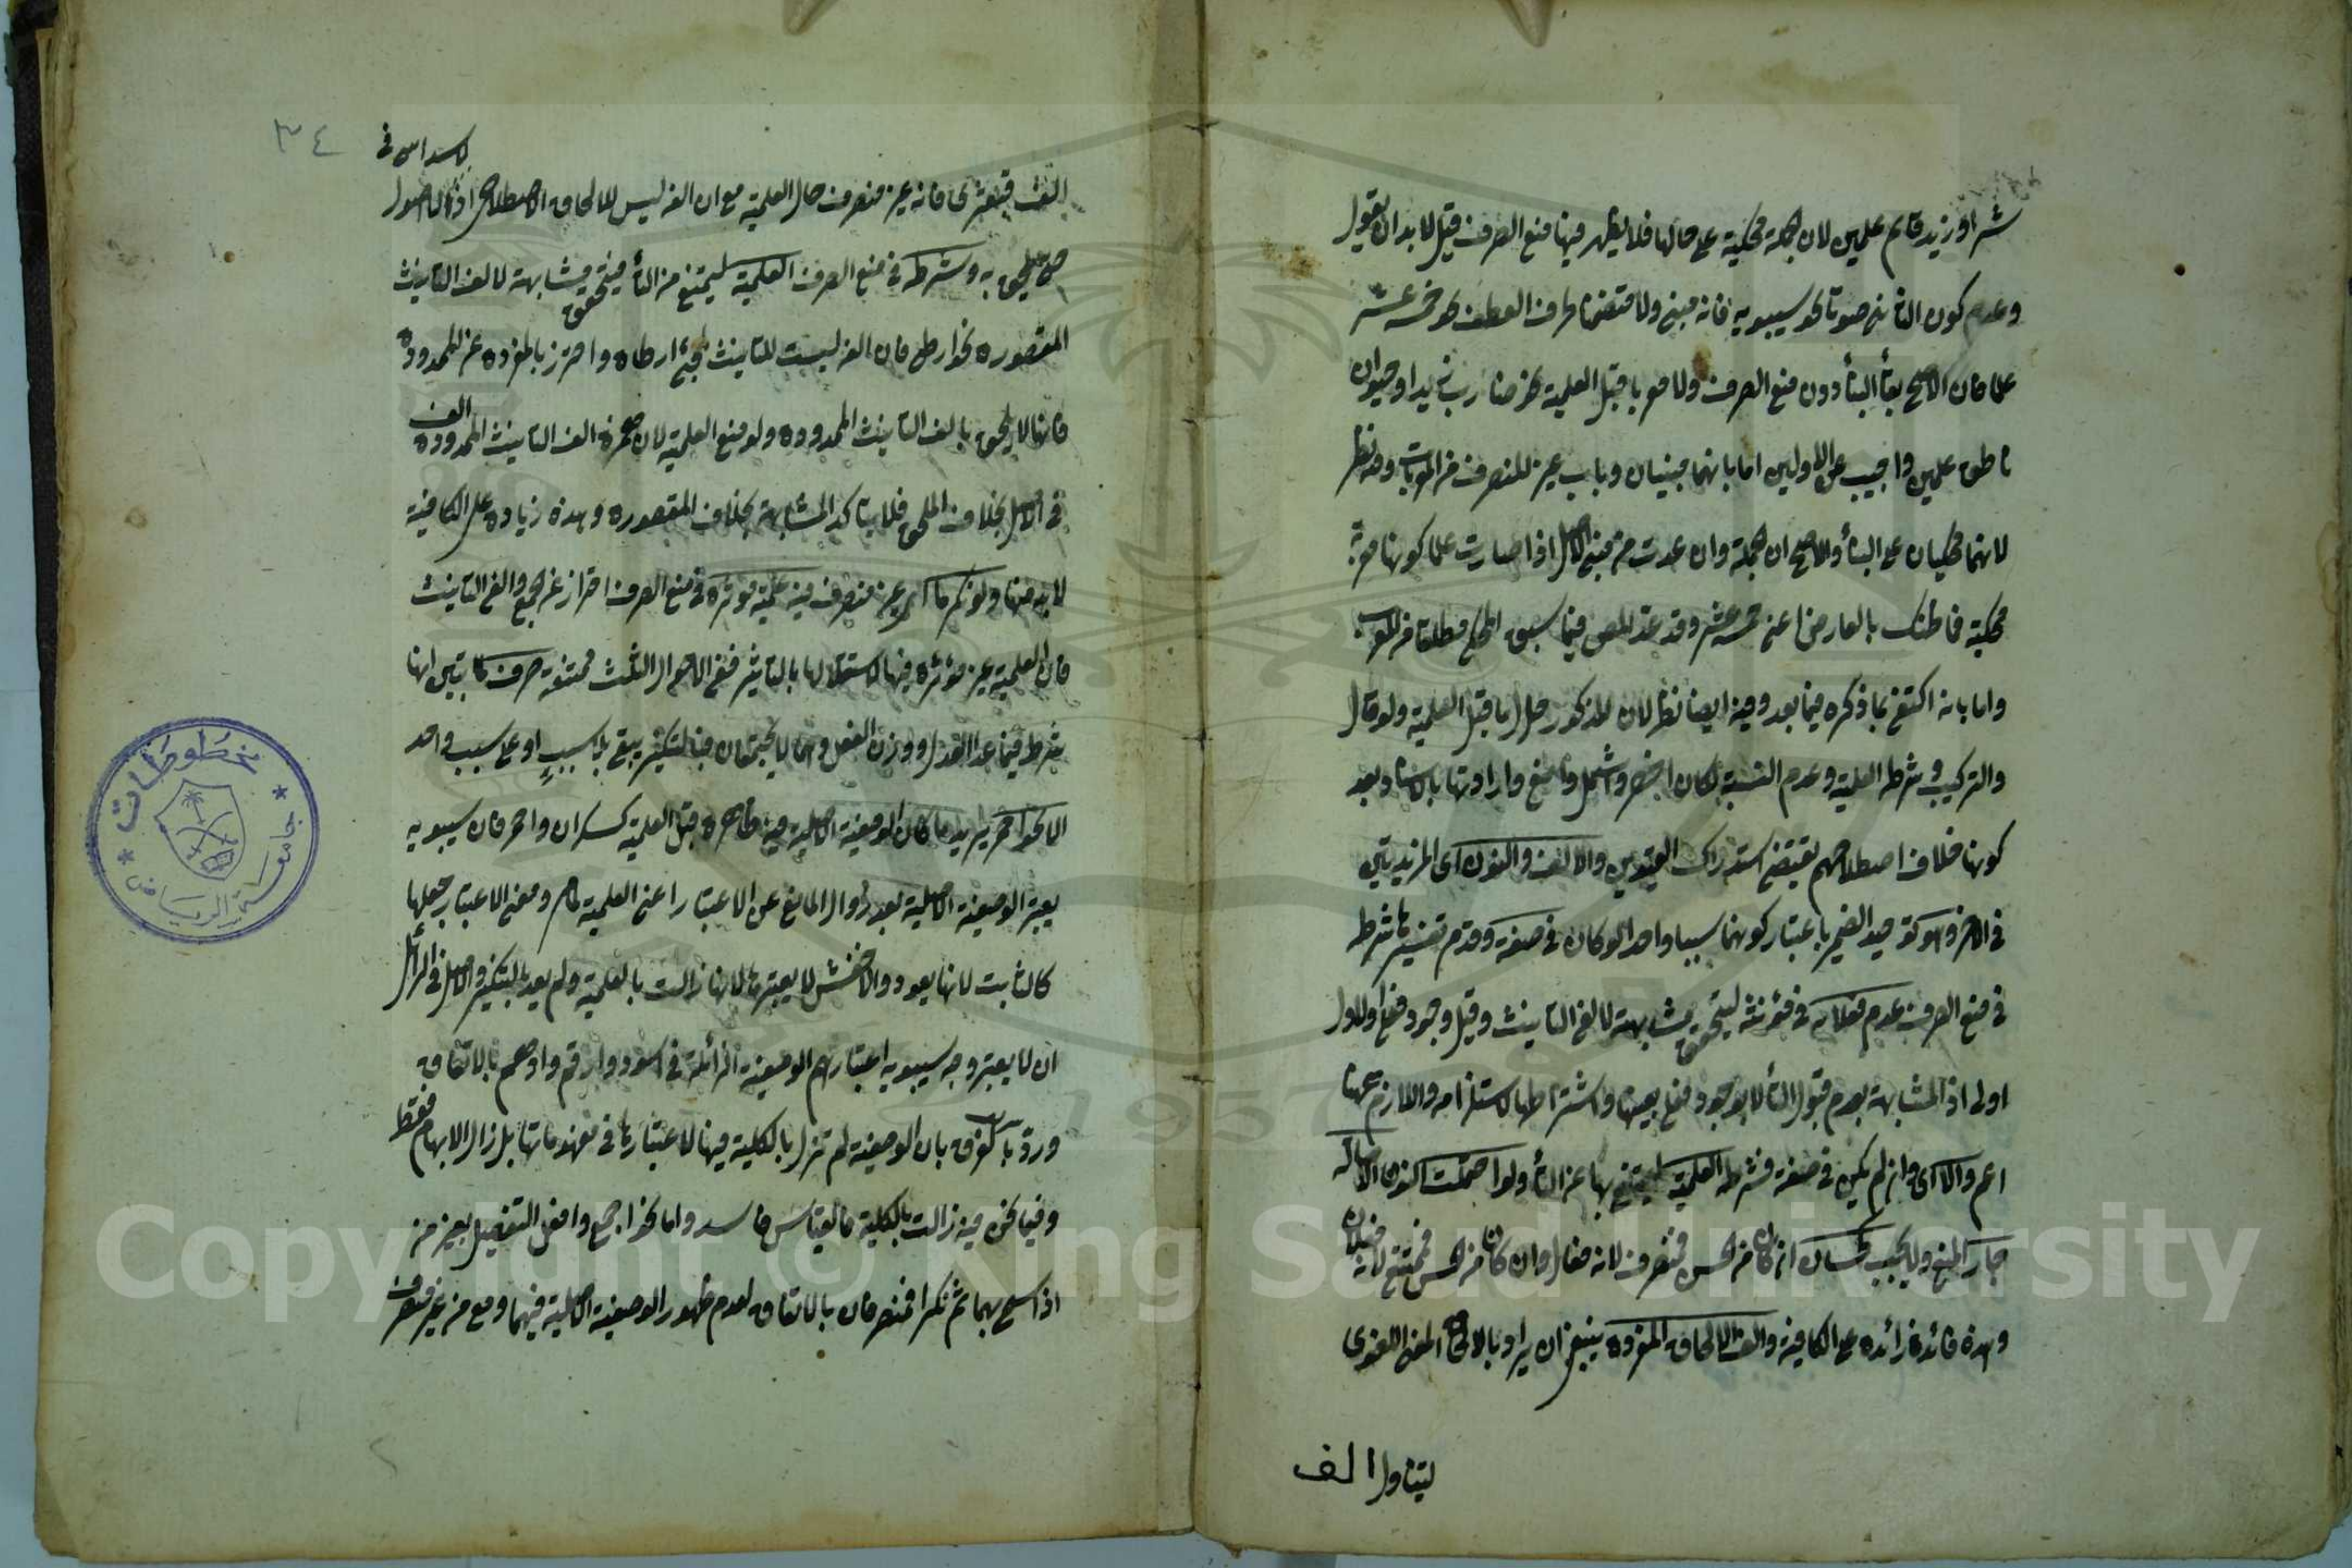 شرا او زيد قائم علمين لان جملة محكية على حالها فلا يظهر فيها منع الصرف قيل لا بد ان يقول
وعدم كون الثاني صوتا نحو سيبويه فانه مبني ولا متضمنا حرف العطف نحو خمسة عشر
علما فان الافصح بقاء البناء دون منع الصرف ولا معربا قبل العلمية نحو ضارب زيدا وحيوان
ناطق علمين واجيب عن الاولين اما بانهما مبنيان وباب غير المنصرف من المعربات وفيه نظر
لانهما محكيان على البناء والاصح ان جملة وان عدت من مبني الاصل اذا صارت علما كونها معربة
محكية فما ظنك بالعارض اعني خمسة عشر وقد عد المص فيما سبق المحكي مطلقا من المعرب
واما بانه اكتفى بما ذكره فيما بعد وفيه ايضا نظر لان المذكور حال ما قبل العلمية ولو قال
والتركيب وشرطه العلمية وعدم النسبة لكان اخصر واشمل وامنع وارادتها بالاسناد بعد
كونها خلاف اصطلاحهم يقتضي استدراك القيدين والالف والنون اى المزيدتين
في الاخر وهو توحيد الضمير باعتبار كونهما سببا واحدا لو كان في صفة وقدم تفسيرها شرطه
في منع الصرف عدم فعلانة في مؤنثه ليتحقق مشابهته لالفي التانيث وقيل وجود فعلى والاول
اولى اذ المشابهة بعدم قبول التاء لا بوجود فعلى بعينها واشتراطها لاستلزامه واللازم هنا
اعم والا اى وان لم يكن في صفة فشرطه العلمية ليمتنع بها عن التاء ولو احتملت النون الاصالة
جاز المنع ولا يجب كحسان ان كان من الحسن فمنصرف لانه فعال وان كان من الحس فممتنع لانه فعلان
وهذه فائدة زائدة على الكافية والف الالحاق المفردة ينبغي ان يراد بالالحاق المعنى اللغوى
ليتناول الف
٣٤
لا سداسي في
الف قبعثرى فانه غير منصرف حال العلمية مع ان الفه ليس للالحاق الاصطلاحي اذ الاصول
حتى يلحق به وشرطه في منع الصرف العلمية ليمتنع من التاء فيتحقق مشابهته لالف التانيث
المقصورة نحو ارطى فان الفه ليست للتانيث لمجئ ارطاة واحترز بالمفردة عن الممدودة
فانها لا تلحق بالف التانيث الممدودة ولو مع العلمية لان همزة الف التانيث الممدودة الف
في الاصل بخلاف الملحق فلا يتاكد المشابهة بخلاف المقصورة وهذه زيادة على الكافية
لا بد منها ولو نكر ما اى غير منصرف فيه علمية مؤثرة في منع الصرف احترز عن الجمع والفي التانيث
فان العلمية غير مؤثرة فيها لاستقلالها بالتاثير ففي الاحوال الثلث ممتنعة صرف لما تبين انها
شرط فيما عدا العدل ووزن الفعل وهما لا يجتمعان فبالتنكير يبقى بلا سبب او على سبب واحد
الا نحو احمر يريد ما كان الوصفية الاصلية فيه ظاهرة قبل العلمية كسكران واحمر فان سيبويه
يعتبر الوصفية الاصلية بعد زوال المانع عن الاعتبار اعني العلمية لما مر ومعنى الاعتبار جعلها
كالثابت لا انها يعود والاخفش لا يعتبرها لانها زالت بالعلمية ولم يعد بالتنكير والاصل في الزائل
ان لا يعتبر وجه سيبويه اعتبارهم الوصفية الزائلة في اسود وارقم وادهم بالاتفاق
ورد بالفرق بان الوصفية لم تزل بالكلية فيها لاعتبارها في مفهوماتها بل زال الابهام فقط
وفيما نحن فيه زالت بالكلية فالقياس فاسد واما نحو اجمع وافعل التفضيل بغير من
اذا سمي بهما ثم نكرا فمنصرفان بالاتفاق لعدم ظهور الوصفية الاصلية فيهما ومع من غير منصرف
مخطوطات
جامعة الرياض
1957
Copyright © King Saud University